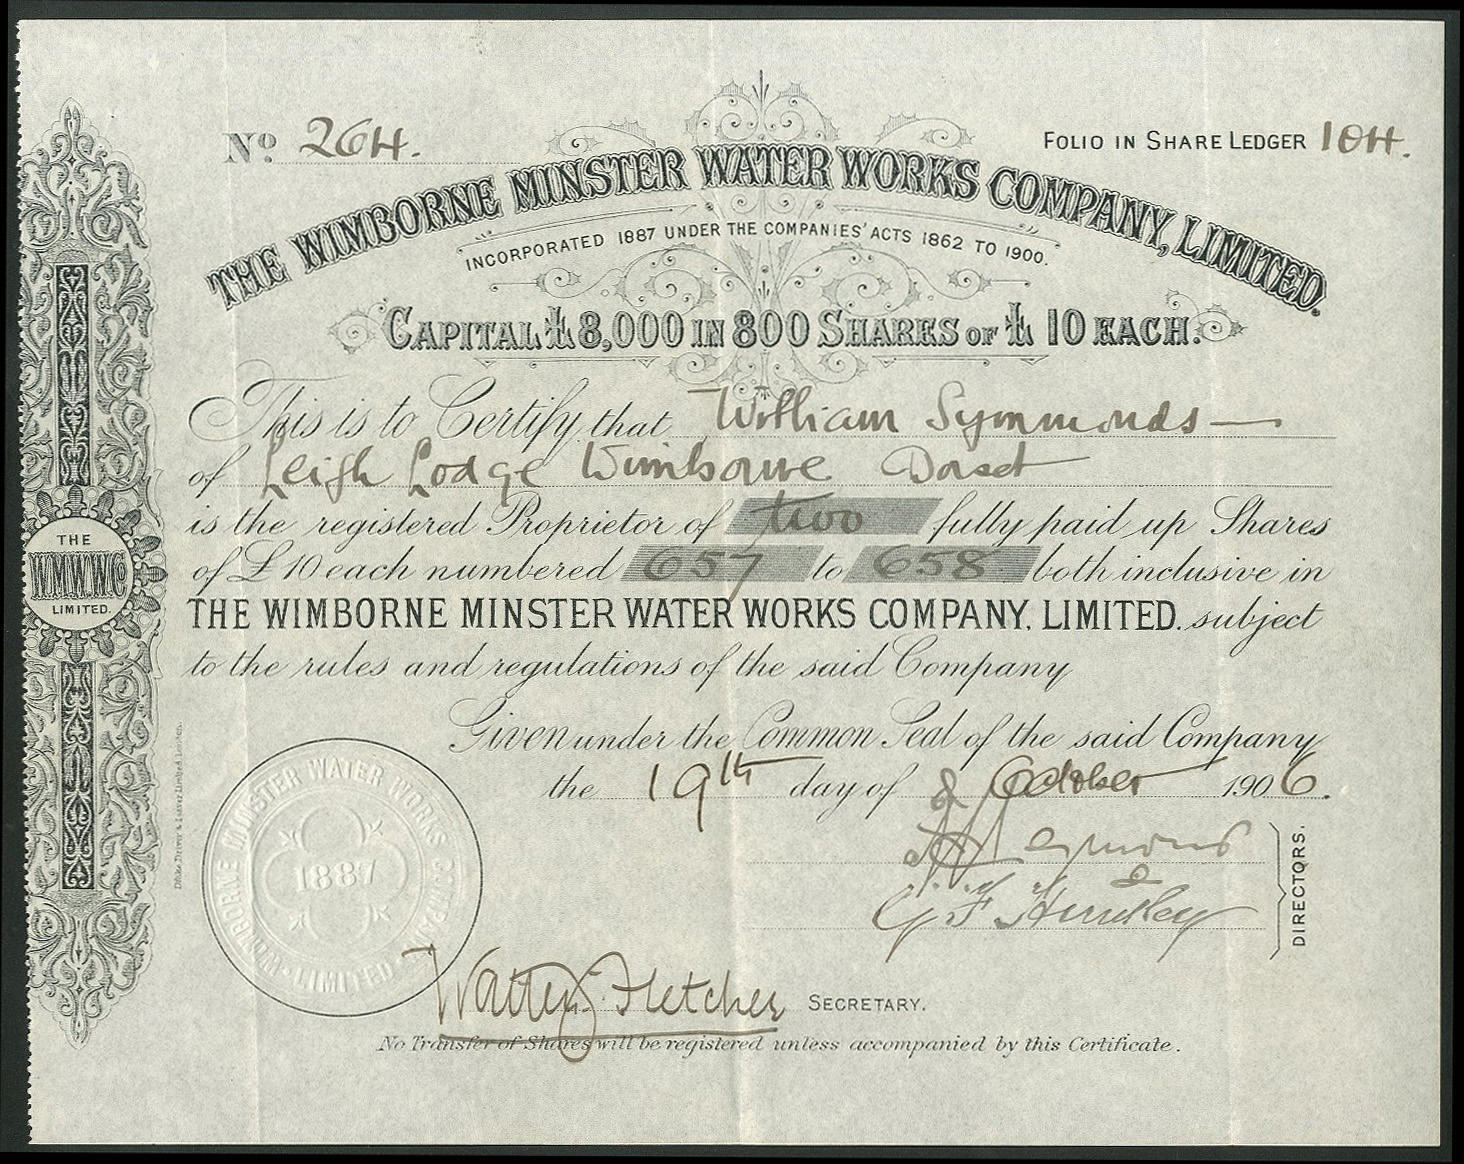 No. 264.
FOLIO IN SHARE LEDGER 104.
THE WIMBORNE MINSTER WATER WORKS COMPANY, LIMITED.
INCORPORATED 1887 UNDER THE COMPANIES' ACTS 1862 TO 1900.
CAPITAL £8,000 IN 800 SHARES OF £10 EACH.
This is to Certify that William Symmonds
of Leigh Lodge Wimborne Dorset
is the registered Proprietor of two fully paid up Shares
of £10 each numbered 657 to 658 both inclusive in
THE WIMBORNE MINSTER WATER WORKS COMPANY, LIMITED. subject
to the rules and regulations of the said Company
Given under the Common Seal of the said Company
the 19th day of October 1906.
G. F. Hunsley
DIRECTORS.
Fletcher SECRETARY.
No Transfer of Shares will be registered unless accompanied by this Certificate.
THE
W.M.W.W.Co
LIMITED.
WIMBORNE MINSTER WATER WORKS COMPANY
LIMITED
1887